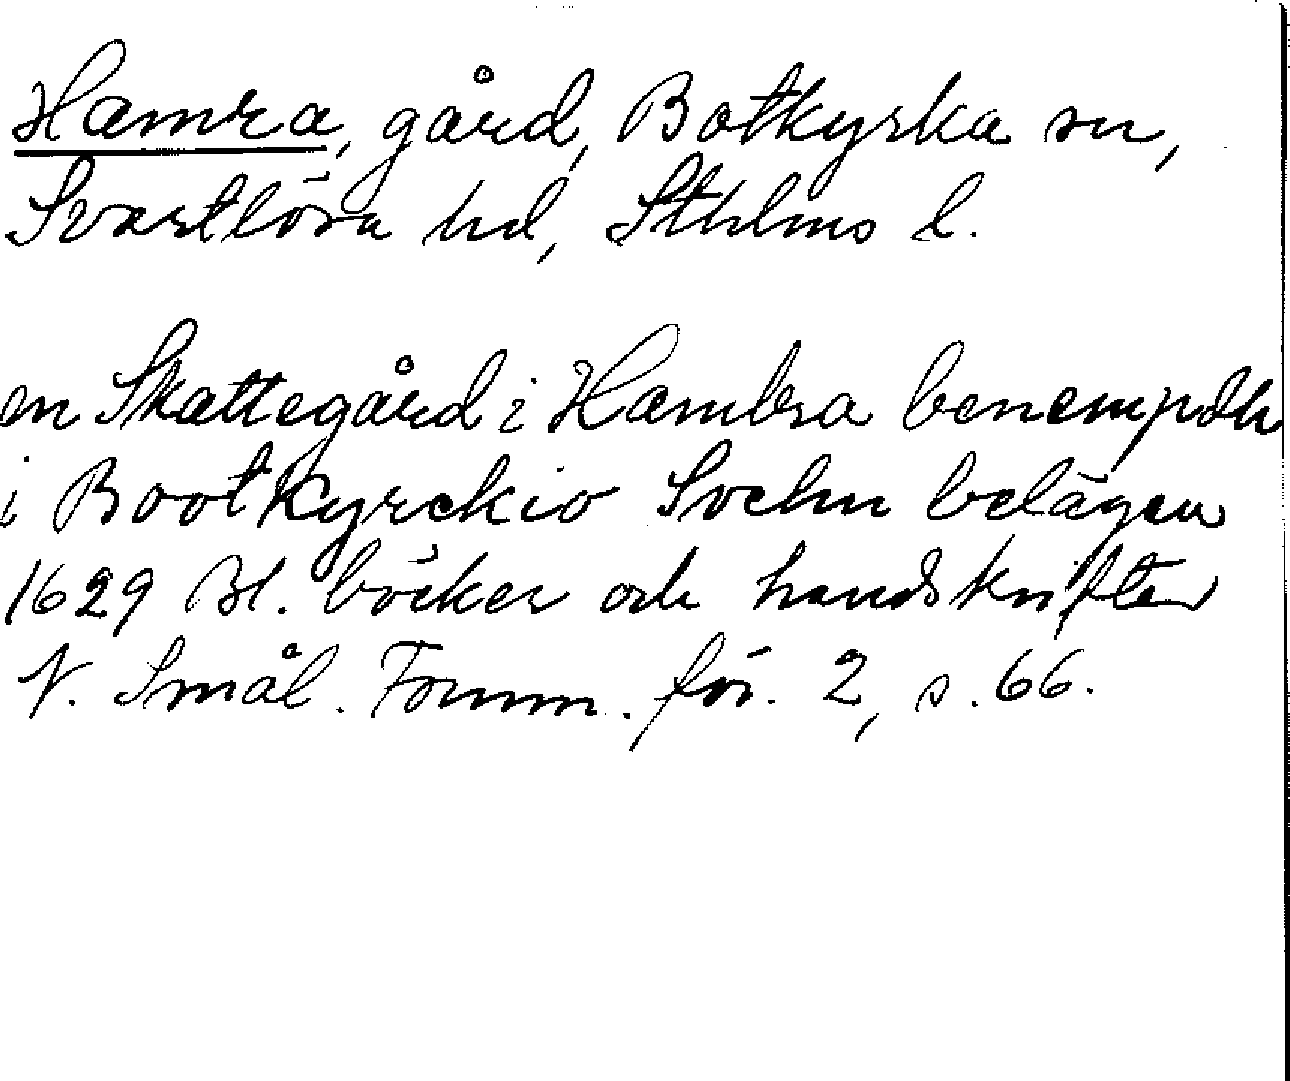 Hamra, gård, Botkyrka sn,
Svartlösa hd, Sthlms l.
en Skattegård i Hambra benempdh
i Bootkyrckio Sochn belägen
1629 Bl. böcker och handskrifter
N. Smål. Fornm. för. 2, s. 66.